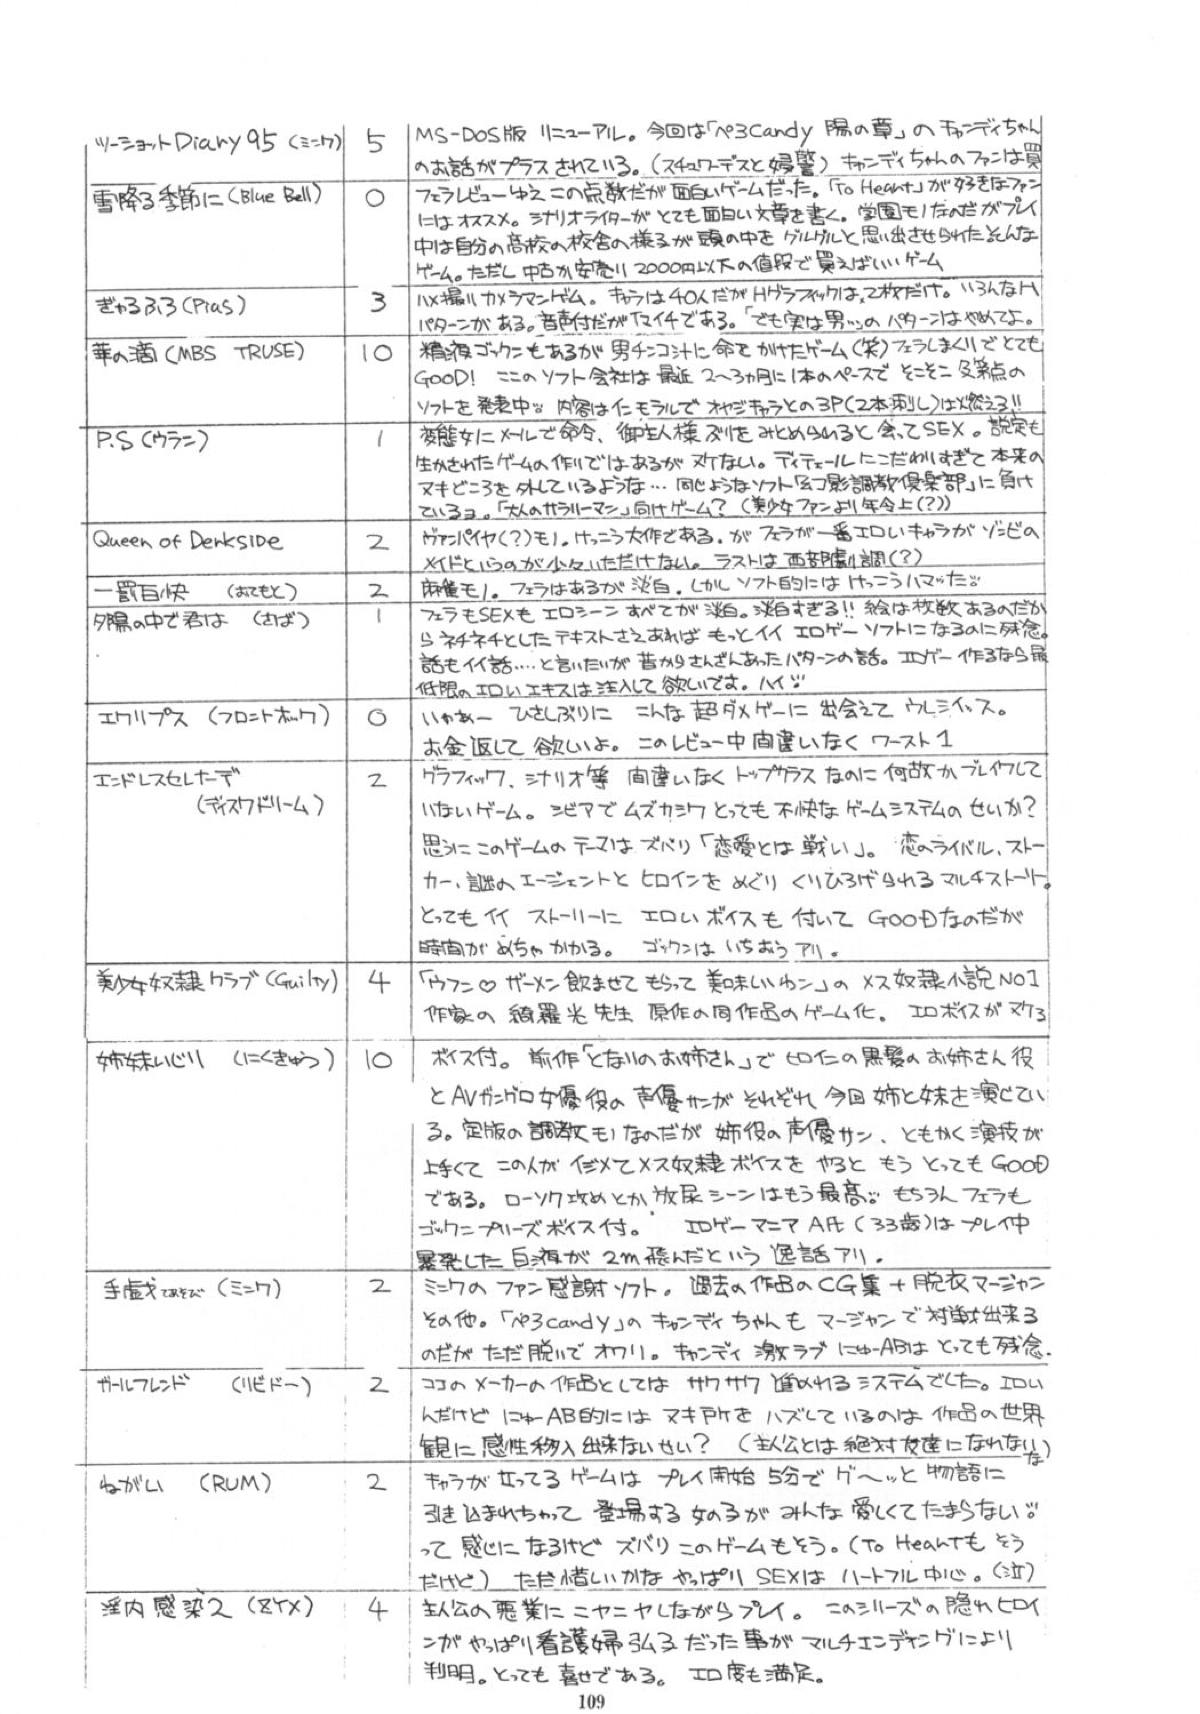 ツーショットDiary95 (ミンク) 5 MS-DOS版 リニューアル。今回は「ぺろCandy 陽の章」のキャンディちゃん
のお話がプラスされている。(スチュワーデスと婦警) キャンディちゃんのファンは買
雪降る季節に(Blue Bell) 0 フェラレビューゆえこの点数だが面白いゲームだった。「To Heart」が好きなファン
にはオススメ。シナリオライターがとても面白い文章を書く。学園モノなのだがプレイ
中は自分の高校の校舎の様子が頭の中をグルグルと思い出させられたそんな
ゲーム。ただし中古か安売り2000円以下の値段で買えばいいゲーム
ぎゃるふろ(Pias) 3 ハメ撮りカメラマンゲーム。キャラは40人だがHグラフィックは、2枚だけ。いろんなH
パターンがある。音声付だがイマイチである。「でも実は男…」のパターンはやめてよ。
華の滴(MBS TRUSE) 10 精液ゴックンもあるが男チンコ汁に命をかけたゲーム(笑)フェラしまくりでとても
GOOD! ここのソフト会社は最近2〜3ヵ月に1本のペースでそこそこ及第点の
ソフトを発表中。 内容はインモラルでオヤジキャラとの3P(2本刺し)は燃える!!
P.S(ウラン) 1 変態女にメールで命令、御主人様ぶりをみとめられると会ってSEX。設定も
生かされたゲームの作りではあるがヌケない。ディティールにこだわりすぎて本来の
ヌキどころを外しているような… 同じようなソフト「幻影調教倶楽部」に負け
ているョ。「大人のサラリーマン」向けゲーム? (美少女ファンより年令上(?))
Queen of Derkside 2 ヴァンパイヤ(?)モノ。けっこう大作である。が フェラが一番エロいキャラがゾンビの
メイドというのが少々いただけない。ラストは西部劇調(?)
一罰百快 (おてもと) 2 麻雀モノ。フェラはあるが淡白。しかしソフト的にはけっこうハマった
夕陽の中で君は (さば) 1 フェラもSEXもエロシーンすべてが淡白。淡白すぎる!! 絵は枚数あるのだか
らネチネチとしたテキストさえあればもっとイイ エロゲーソフトになるのに残念。
話もイイ話…‥と言いたいが昔からさんざんあったパターンの話。エロゲー作るなら最
低限のエロいエキスは注入して欲しいですよ。ハイ
エクリプス (フロントホック) 0 いやぁー ひさしぶりに こんな超ダメゲーに出会えてウレシイッス。
お金返して欲しいよ。このレビュー中間違いなくワースト1
エンドレスセレナーデ 2 グラフィック、シナリオ等 間違いなくトップクラスなのに何故かブレイクして
(ディスクドリーム) いないゲーム。シビアでムズカシクとっても不快なゲームシステムのせいか?
思うにこのゲームのテーマはズバリ「恋愛とは戦い」。 恋のライバル、ストー
カー、謎のエージェントとヒロインをめぐりくりひろげられるマルチストーリー。
とってもイイ ストーリーに エロいボイスも付いてGOODなのだが
時間がめちゃかかる。 ゴックンはいちおうアリ。
美少女奴隷クラブ(Guilty) 4 「ウフン♡ザーメン飲ませてもらって美味しいわン」のメス奴隷小説NO1
作家の綺羅光先生原作の同作品のゲーム化。 エロボイスがヌケる
姉妹いじり (にくきゅう) 10 ボイス付。前作「となりのお姉さん」でヒロインの黒髪のお姉さん役
とAVガングロ女優役の声優サンがそれぞれ今回姉と妹を演じてい
る。定版の調教モノなのだが姉役の声優サン、ともかく演技が
上手くてこの人がイジメてメス奴隷ボイスをやるともうとってもGOOD
である。ローソク攻めとか放尿シーンはもう最高 もちろんフェラも
ゴックンプリーズボイス付。 エロゲーマニアA氏(33歳)はプレイ中
暴発した白液が2m飛んだという逸話アリ。
手戯てあそび(ミンク) 2 ミンクのファン感謝ソフト。過去の作品のCG集+脱衣マージャン
その他。「ぺろcandy」のキャンディちゃんもマージャンで対戦出来る
のだがただ脱いでオワリ。キャンディ激ラブにゅーABはとっても残念.
ガールフレンド (リビドー) 2 ココのメーカーの作品としてはサクサク進められるシステムでした。エロい
んだけどにゅーAB的にはヌキドコをハズしているのは作品の世界
観に感性移入出来ないせい? (主人公とは絶対友達になれないな)
ねがい (RUM) 2 キャラが立ってるゲームはプレイ開始5分でグ〜ッと物語に
引き込まれちゃって登場する女の子がみんな愛しくてたまらない
って感じになるけどズバリこのゲームもそう。(To Heartもそう
だけど) ただ惜しいかなやっぱりSEXはハートフル中心。(泣)
淫内感染2(ZYX) 4 主人公の悪業にニヤニヤしながらプレイ。 このシリーズの隠れヒロイ
ンがやっぱり看護婦弘子だった事がマルチエンディングにより
判明。とっても喜せである。 エロ度も満足。
109